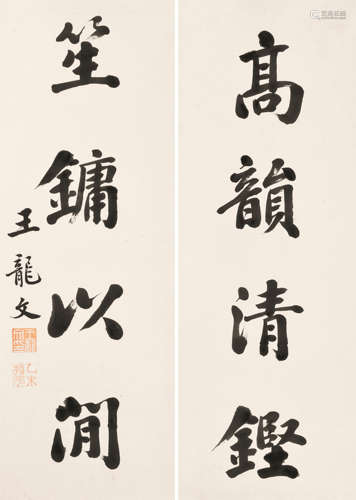 高韻清鏗
笙鏞以間
王龍文